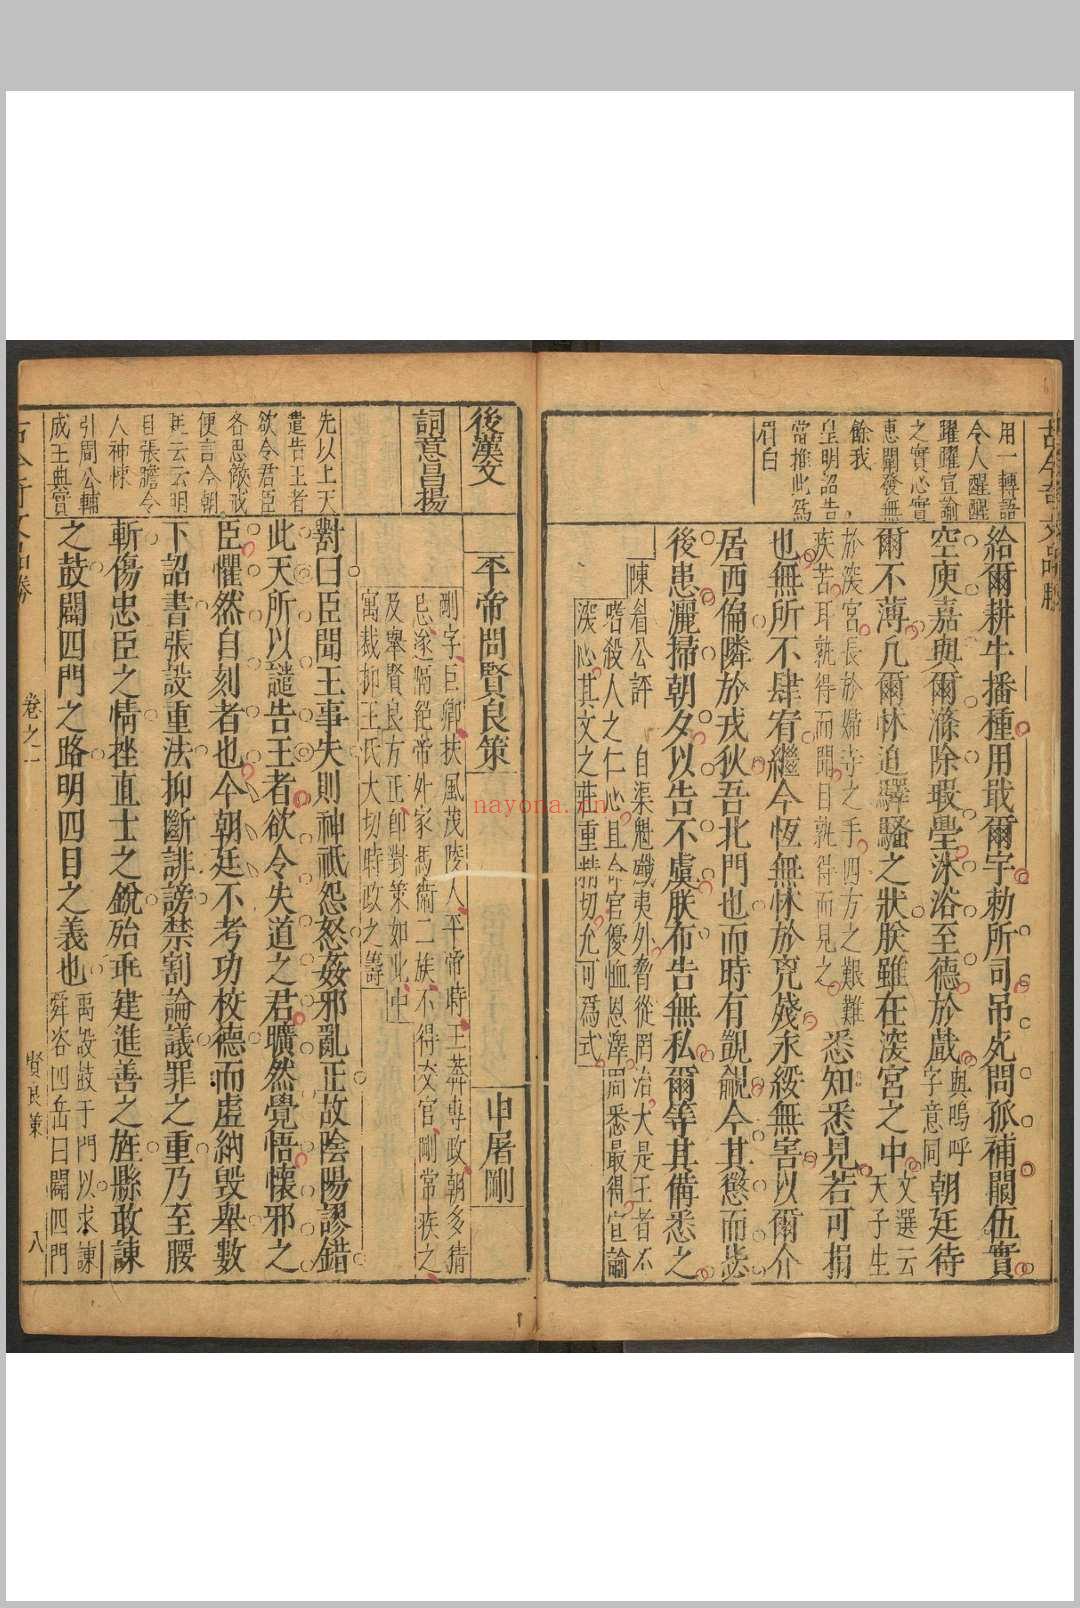 用一轉語
令人醒醒
躍躍宣諭
之實心實
惠闡發無
餘我
皇明詔告
當推此爲
眉白
給爾耕牛播種用戢爾宇勅所司吊死問孤補闕伍實
空庾嘉與爾滌除瑕壘沐浴至德於戲
與嗚呼
字意同
朝廷待
爾不薄凡爾怵迫驛騷之狀朕雖在深宮之中
文選云
天子生
於深宮長於婦寺之手四方之艱難
疾苦耳孰得而聞目孰得而見之
悉知悉見若可捐
也無所不肆宥繼今恆無怵於兇殘永綏無害以爾介
居西倫隣於戎狄吾北門也而時有覬覦今其懲而毖
後患灑掃朝夕以告不虞朕布告無私爾等其備悉之
陳眉公評
自渠魁殲夷外脅從罔治大是王者不
嗜殺人之仁心且命官優恤恩澤周悉最得宣諭
深心其文之莊重精切允可爲式
後漢文
平帝問賢良策
申屠剛
詞意昌揚
剛字巨卿扶風茂陵人平帝時王莽專政朝多猜
忌遂隔絕帝外家馮衛二族不得交官剛常疾之
及舉賢良方正卽對策如此中
寓裁抑王氏大切時政之籌
先以上天
譴告王者
欲令君臣
各思儆戒
便言今朝
廷云云明
目張膽令
人神悚
引周公輔
成王典實
對曰臣聞王事失則神祇怨怒姦邪亂正故陰陽謬錯
此天所以譴告王者欲令失道之君曠然覺悟懷邪之
臣懼然自刻者也今朝廷不考功校德而虛納毀譽數
下詔書張設重法抑斷誹謗禁割論議罪之重乃至腰
斬傷忠臣之情挫直士之銳殆乖建進善之旌縣敢諫
之鼓闢四門之路明四目之義也
禹設鼓于門以求諫
舜咨四岳曰闢四門
卷之一
賢良策
八
nayona.cn